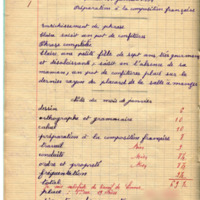 Préparation à la composition française
Enrichissement de phrase
Claire saisit un pot de confitures
Phrase complète
Claire, une petite fille de sept ans, très gourmande
et désobéissante, saisit en l'absence de sa
maman, un pot de confitures placé sur le
dernier rayon du placard de la salle à manger
Note du mois de janvier
dessin 2
orthographe et grammaire
calcul
préparation à la composition française 8
travail
conduite
ordre et propreté
fréquentation
total
Je suis satisfaite du travail de
place